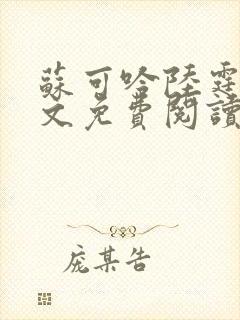 蘇可哈陸霆
文免費閱讀
庞某告